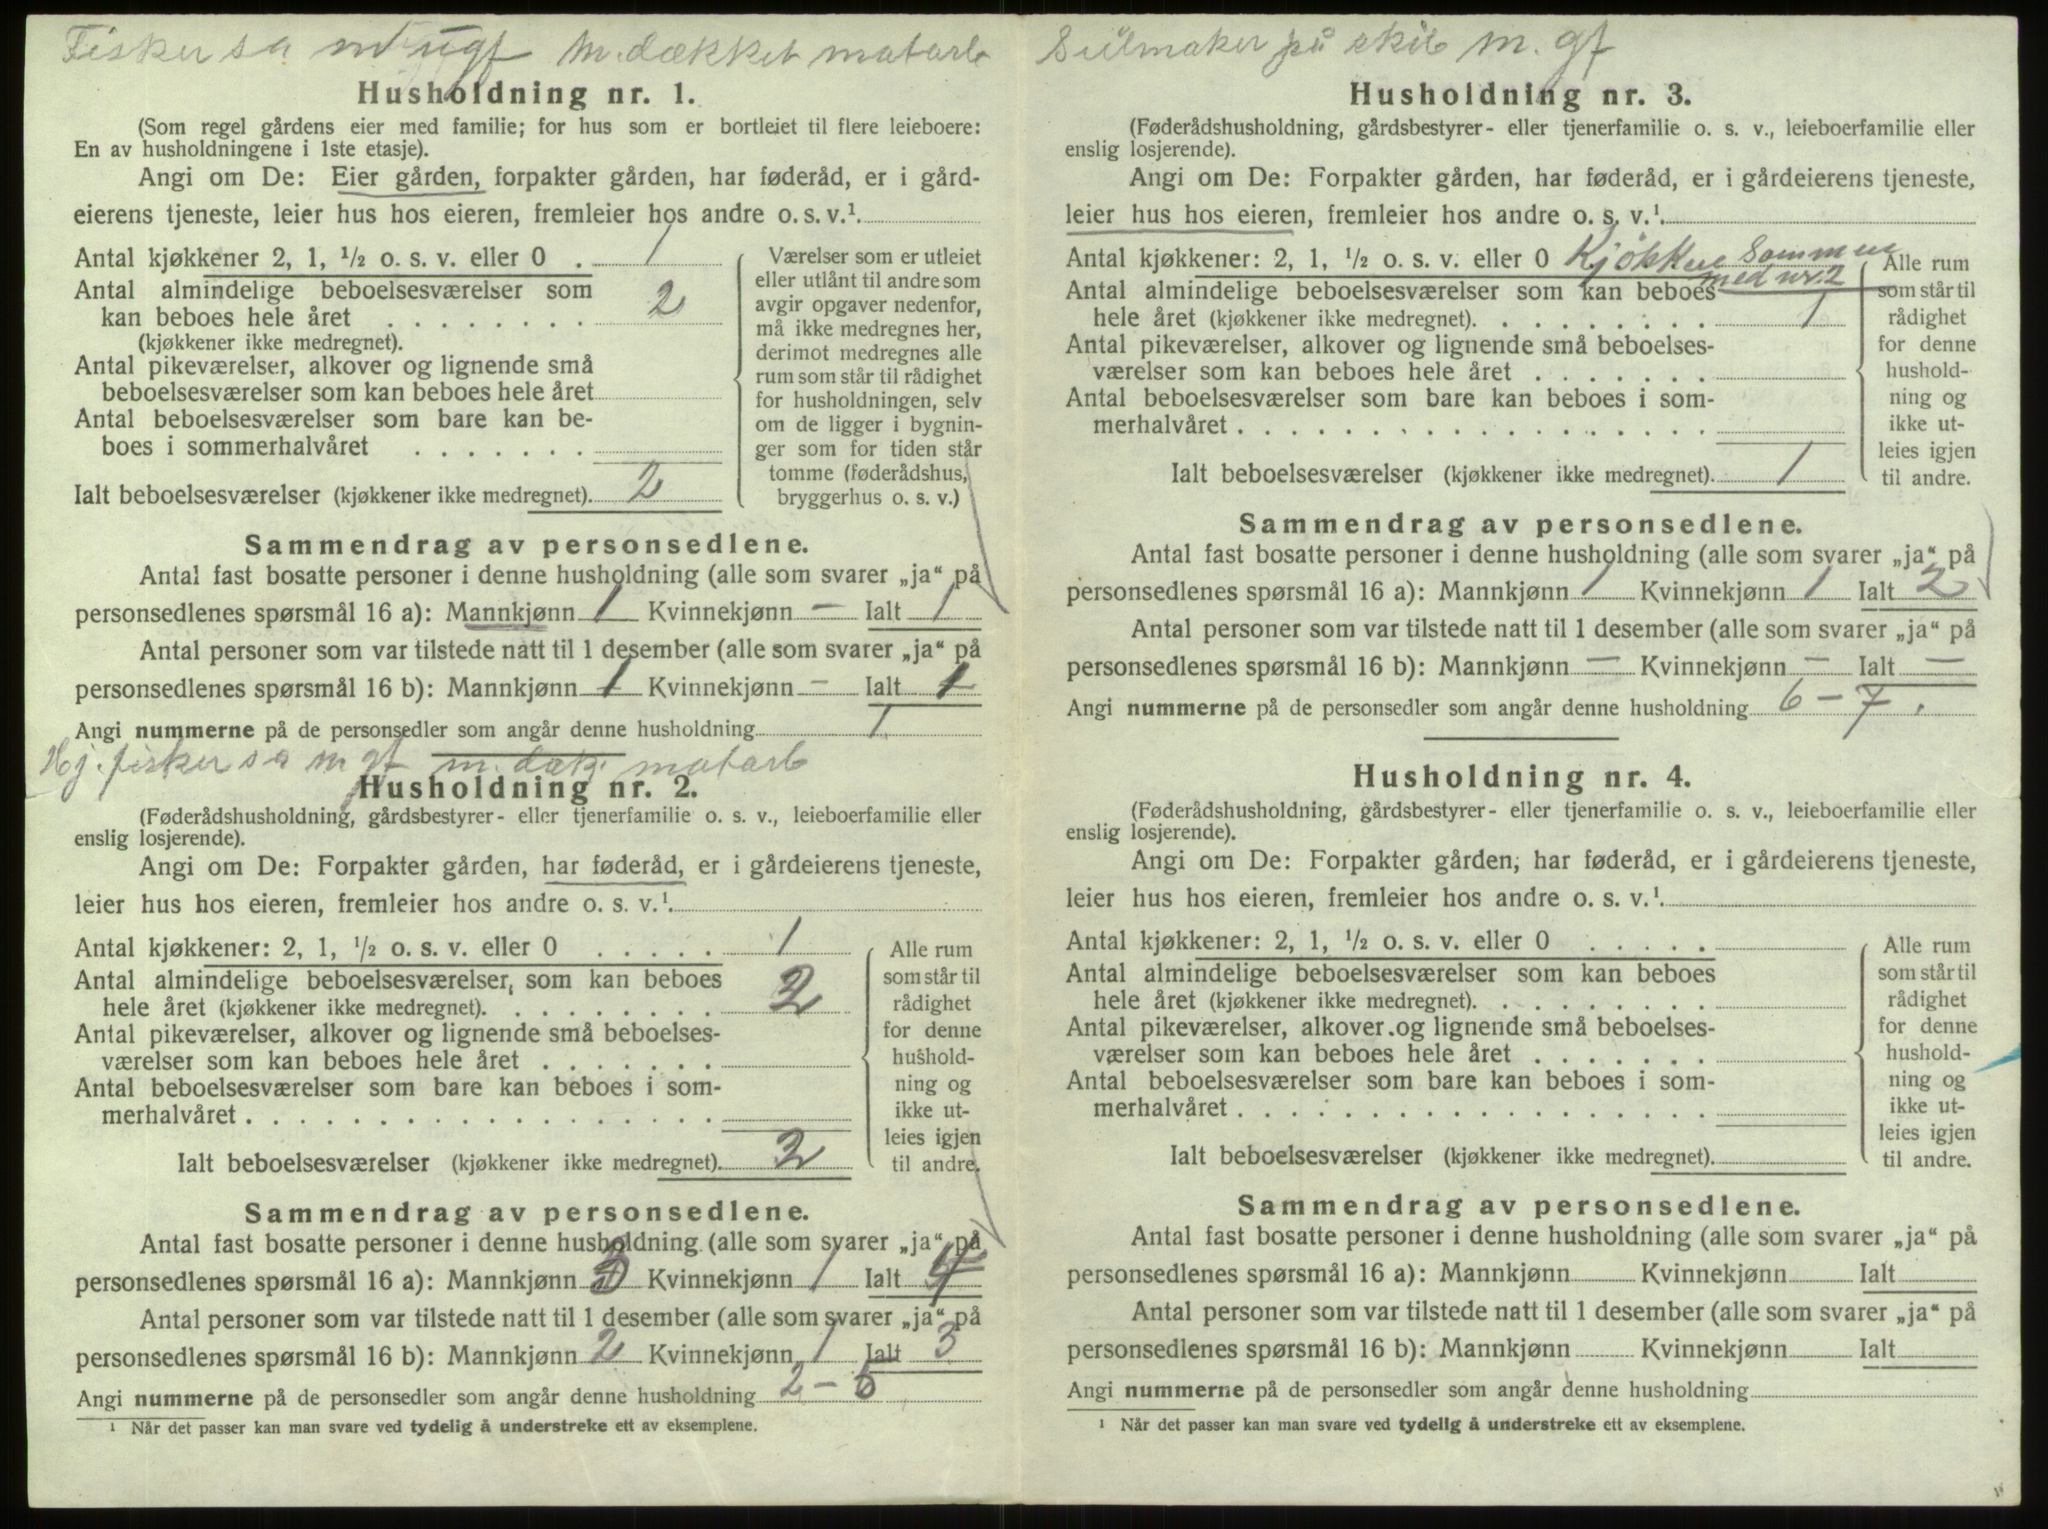 Fisker sa m ugf m. dækket matarb
Husholdning nr. 1.
(Som regel gårdens eier med familie; for hus som er bortleiet til flere leieboere:
En av husholdningene i 1ste etasje).
Angi om De: Eier gården, forpakter gården, har føderåd, er i gård-
eierens tjeneste, leier hus hos eieren, fremleier hos andre o. s. v.¹
Antal kjøkkener 2, 1, ½ o. s. v. eller 0 . 1
Antal almindelige beboelsesværelser som
kan beboes hele året . . . . . . . . 2
(kjøkkener ikke medregnet).
Antal pikeværelser, alkover og lignende små
beboelsesværelser som kan beboes hele året
Antal beboelsesværelser som bare kan be-
boes i sommerhalvåret . . . . . . .
Ialt beboelsesværelser (kjøkkener ikke medregnet). 2
Værelser som er utleiet
eller utlånt til andre som
avgir opgaver nedenfor,
må ikke medregnes her,
derimot medregnes alle
rum som står til rådighet
for husholdningen, selv
om de ligger i bygnin-
ger som for tiden står
tomme (føderådshus,
bryggerhus o. s. v.)
Sammendrag av personsedlene.
Antal fast bosatte personer i denne husholdning (alle som svarer „ja“ på
personsedlenes spørsmål 16 a): Mannkjønn 1 Kvinnekjønn — Ialt 1
Antal personer som var tilstede natt til 1 desember (alle som svarer „ja“ på
personsedlenes spørsmål 16 b): Mannkjønn 1 Kvinnekjønn — Ialt 1
Angi nummerne på de personsedler som angår denne husholdning 1
Hj. fisker sa m gf m. dæk. matarb
Husholdning nr. 2.
(Føderådshusholdning, gårdsbestyrer- eller tjenerfamilie o. s. v., leieboerfamilie eller
enslig losjerende).
Angi om De: Forpakter gården, har føderåd, er i gårdeierens tjeneste,
leier hus hos eieren, fremleier hos andre o. s. v.¹
Antal kjøkkener: 2, 1, ½ o. s. v. eller 0 . . . . . 1
Antal almindelige beboelsesværelser, som kan beboes
hele året (kjøkkener ikke medregnet). . . . . . . . . 2
Antal pikeværelser, alkover og lignende små beboelses-
værelser som kan beboes hele året . . . . . . .
Antal beboelsesværelser som bare kan beboes i som-
merhalvåret . . . . . . . . . . . . . . . . . .
Ialt beboelsesværelser (kjøkkener ikke medregnet). 2
Alle rum
som står til
rådighet
for denne
hushold-
ning og
ikke ut-
leies igjen
til andre.
Sammendrag av personsedlene.
Antal fast bosatte personer i denne husholdning (alle som svarer „ja“ på
personsedlenes spørsmål 16 a): Mannkjønn 3 Kvinnekjønn 1 Ialt 4
Antal personer som var tilstede natt til 1 desember (alle som svarer „ja“ på
personsedlenes spørsmål 16 b): Mannkjønn 2 Kvinnekjønn 1 Ialt 3
Angi nummerne på de personsedler som angår denne husholdning 2 – 5
¹ Når det passer kan man svare ved tydelig å understreke ett av eksemplene.
Seilmaker på skib m. gf
Husholdning nr. 3.
(Føderådshusholdning, gårdsbestyrer- eller tjenerfamilie o. s. v., leieboerfamilie eller
enslig losjerende).
Angi om De: Forpakter gården, har føderåd, er i gårdeierens tjeneste,
leier hus hos eieren, fremleier hos andre o. s. v.¹
Antal kjøkkener: 2, 1, ½ o. s. v. eller 0 Kjøkken sammen
med nr. 2
Antal almindelige beboelsesværelser som kan beboes
hele året (kjøkkener ikke medregnet). . . . . . . . . 1
Antal pikeværelser, alkover og lignende små beboelses-
værelser som kan beboes hele året . . . . . . .
Antal beboelsesværelser som bare kan beboes i som-
merhalvåret . . . . . . . . . . . . . . . . . .
Ialt beboelsesværelser (kjøkkener ikke medregnet). 1
Alle rum
som står til
rådighet
for denne
hushold-
ning og
ikke ut-
leies igjen
til andre.
Sammendrag av personsedlene.
Antal fast bosatte personer i denne husholdning (alle som svarer „ja“ på
personsedlenes spørsmål 16 a): Mannkjønn 1 Kvinnekjønn 1 Ialt 2
Antal personer som var tilstede natt til 1 desember (alle som svarer „ja“ på
personsedlenes spørsmål 16 b): Mannkjønn — Kvinnekjønn — Ialt —
Angi nummerne på de personsedler som angår denne husholdning 6 – 7.
Husholdning nr. 4.
(Føderådshusholdning, gårdsbestyrer- eller tjenerfamilie o. s. v., leieboerfamilie eller
enslig losjerende).
Angi om De: Forpakter gården, har føderåd, er i gårdeierens tjeneste,
leier hus hos eieren, fremleier hos andre o. s. v.¹
Antal kjøkkener: 2, 1, ½ o. s. v. eller 0 . . . . .
Antal almindelige beboelsesværelser som kan beboes
hele året (kjøkkener ikke medregnet). . . . . . . . .
Antal pikeværelser, alkover og lignende små beboelses-
værelser som kan beboes hele året . . . . . . .
Antal beboelsesværelser som bare kan beboes i som-
merhalvåret . . . . . . . . . . . . . . . . . .
Ialt beboelsesværelser (kjøkkener ikke medregnet).
Alle rum
som står til
rådighet
for denne
hushold-
ning og
ikke ut-
leies igjen
til andre.
Sammendrag av personsedlene.
Antal fast bosatte personer i denne husholdning (alle som svarer „ja“ på
personsedlenes spørsmål 16 a): Mannkjønn Kvinnekjønn Ialt
Antal personer som var tilstede natt til 1 desember (alle som svarer „ja“ på
personsedlenes spørsmål 16 b): Mannkjønn Kvinnekjønn Ialt
Angi nummerne på de personsedler som angår denne husholdning
¹ Når det passer kan man svare ved tydelig å understreke ett av eksemplene.